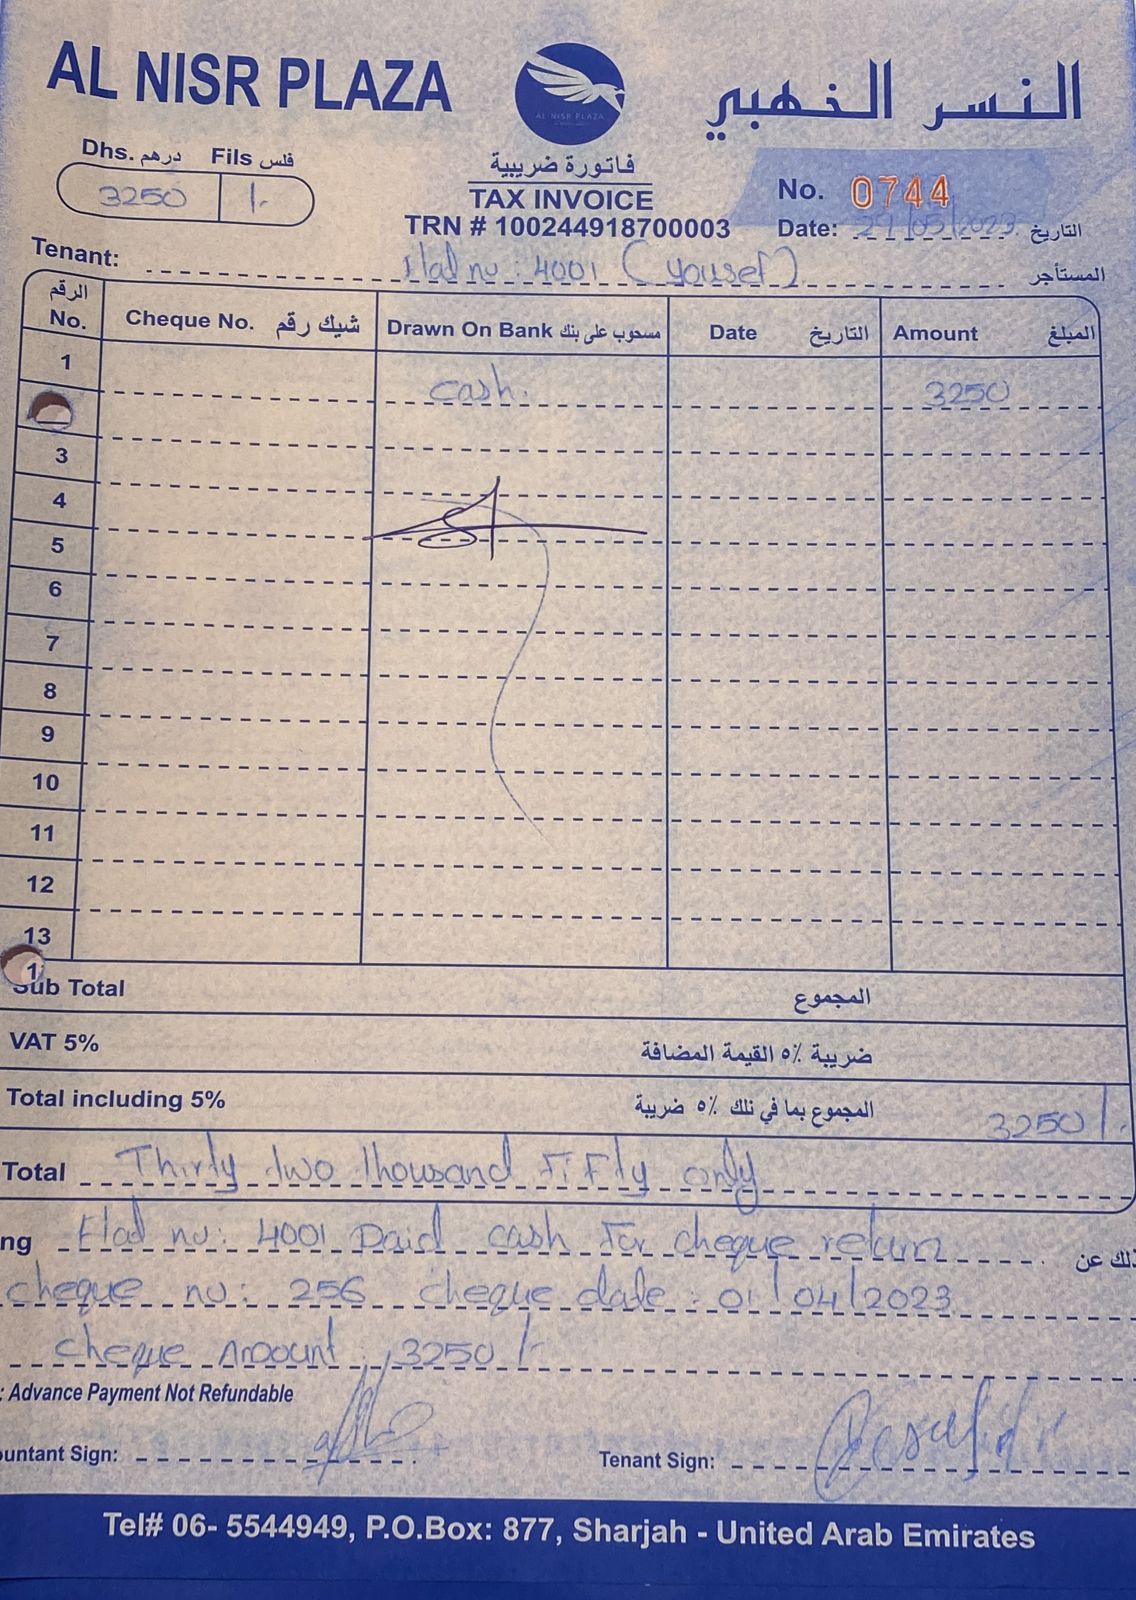 AL NISR PLAZA
النسر الذهبي
AL NISR PLAZA
Dhs. درهم Fils فلس
3250 /-
فاتورة ضريبية
TAX INVOICE
TRN # 100244918700003
No. 0744
Date: 29/05/2023 التاريخ
Tenant: Flat no: 4001 (yousef) المستأجر
الرقم No. Cheque No. شيك رقم Drawn On Bank مسحوب على بنك Date التاريخ Amount المبلغ
1 cash. 3250
3
4
5
6
7
8
9
10
11
12
13
1
Sub Total المجموع
VAT 5% ضريبة ٥٪ القيمة المضافة
Total including 5% المجموع بما في ذلك ٥٪ ضريبة 3250/-
Total Thirty two thousand FiFty only
ng Flat no: 4001 Paid cash For cheque return ذلك عن
cheque no: 256 cheque date: 01/04/2023
cheque Amount: 3250/-
: Advance Payment Not Refundable
ountant Sign:
Tenant Sign:
Tel# 06- 5544949, P.O.Box: 877, Sharjah - United Arab Emirates